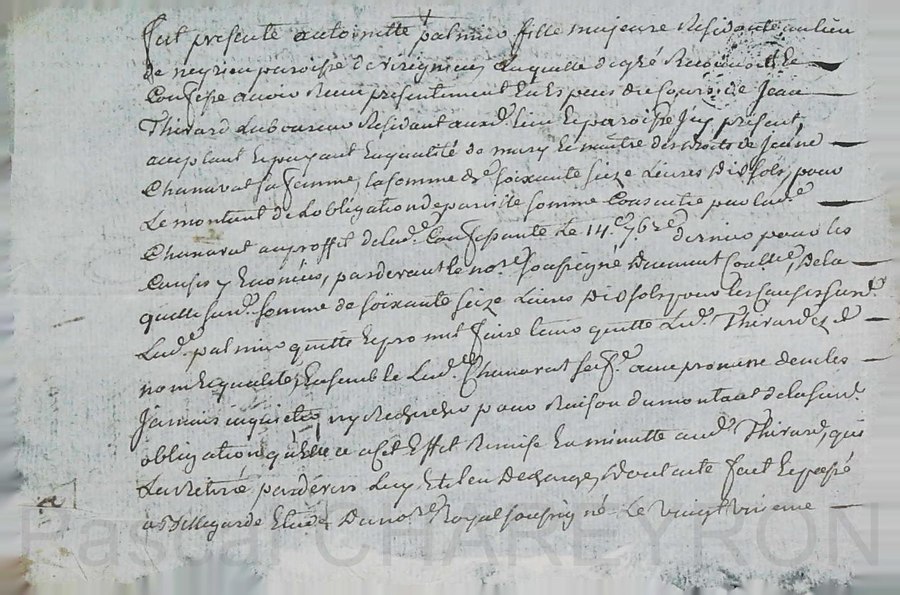 fut presente antoinette palmier fille majeure Residante au lieu
de neyrieu paroisse de Virignieu, Laquelle de gré Reconnoit Et
Confesse avoir Reçu presentement En Especes de cours de Jean
Thivard Laboureur Residant aud. lieu Et paroisse jcy present,
acceptant Et payant En qualité de mary Et maitre des droits de Jeanne
Chanavat sa femme, la somme de soixante seize Livres dix sols, pour
Le montant de Lobligation de pareille somme Consentie par lad.e
Chanavat au proffit de lad.e Confessante Le 14.e 9bre dernier pour les
Causes y Enoncées, pardevant le no.re soussigné Duement Conttrollée, De la
quelle sud.e somme de soixante seize Livres dix sols, pour les Causes sus d.
Lad.e palmier quitte Et promet faire tenir quitte Led. Thivard Esd.
noms Et qualités, Ensemble Lad.e Chanavat sa f.e avec promesse de ne les
Jamais inquieter, ny Rechercher pour Raison du montant de la sus d.
obligation, qu'elle a a cet Effet Remise En minutte aud. Thivard, qui
La Retiré pardevers Luy Et la En Decharge, Dont acte fait Et passé
a Bellegarde Etude Du no.re Royal soussigné Le vingt unieme
Pascal CHAREYRON